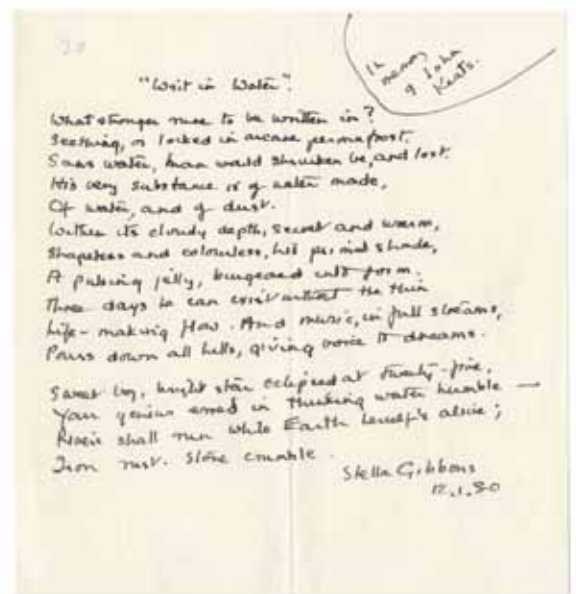 20
In
memory
of John
Keats.
"Writ in Water".
What stronger muse to be written in?
Seething, or locked in arcane permafrost.
Sans water, man would shrunken be, and lost.
His very substance is of water made,
Of water, and of dust.
Within its cloudy depth, secret and warm,
Shapeless and colourless, his primal shade,
A pulsing jelly, burgeoned into form.
Three days he can exist without the thin
Life-making flow. And music, in full streams,
Pours down all hills, giving voice to dreams.
Sweet boy, bright star eclipsed at twenty-five,
Your genius erred in thinking water humble —
Rivers shall run while Earth herself's alive;
Iron rust. Stone crumble.
Stella Gibbons
12.1.80